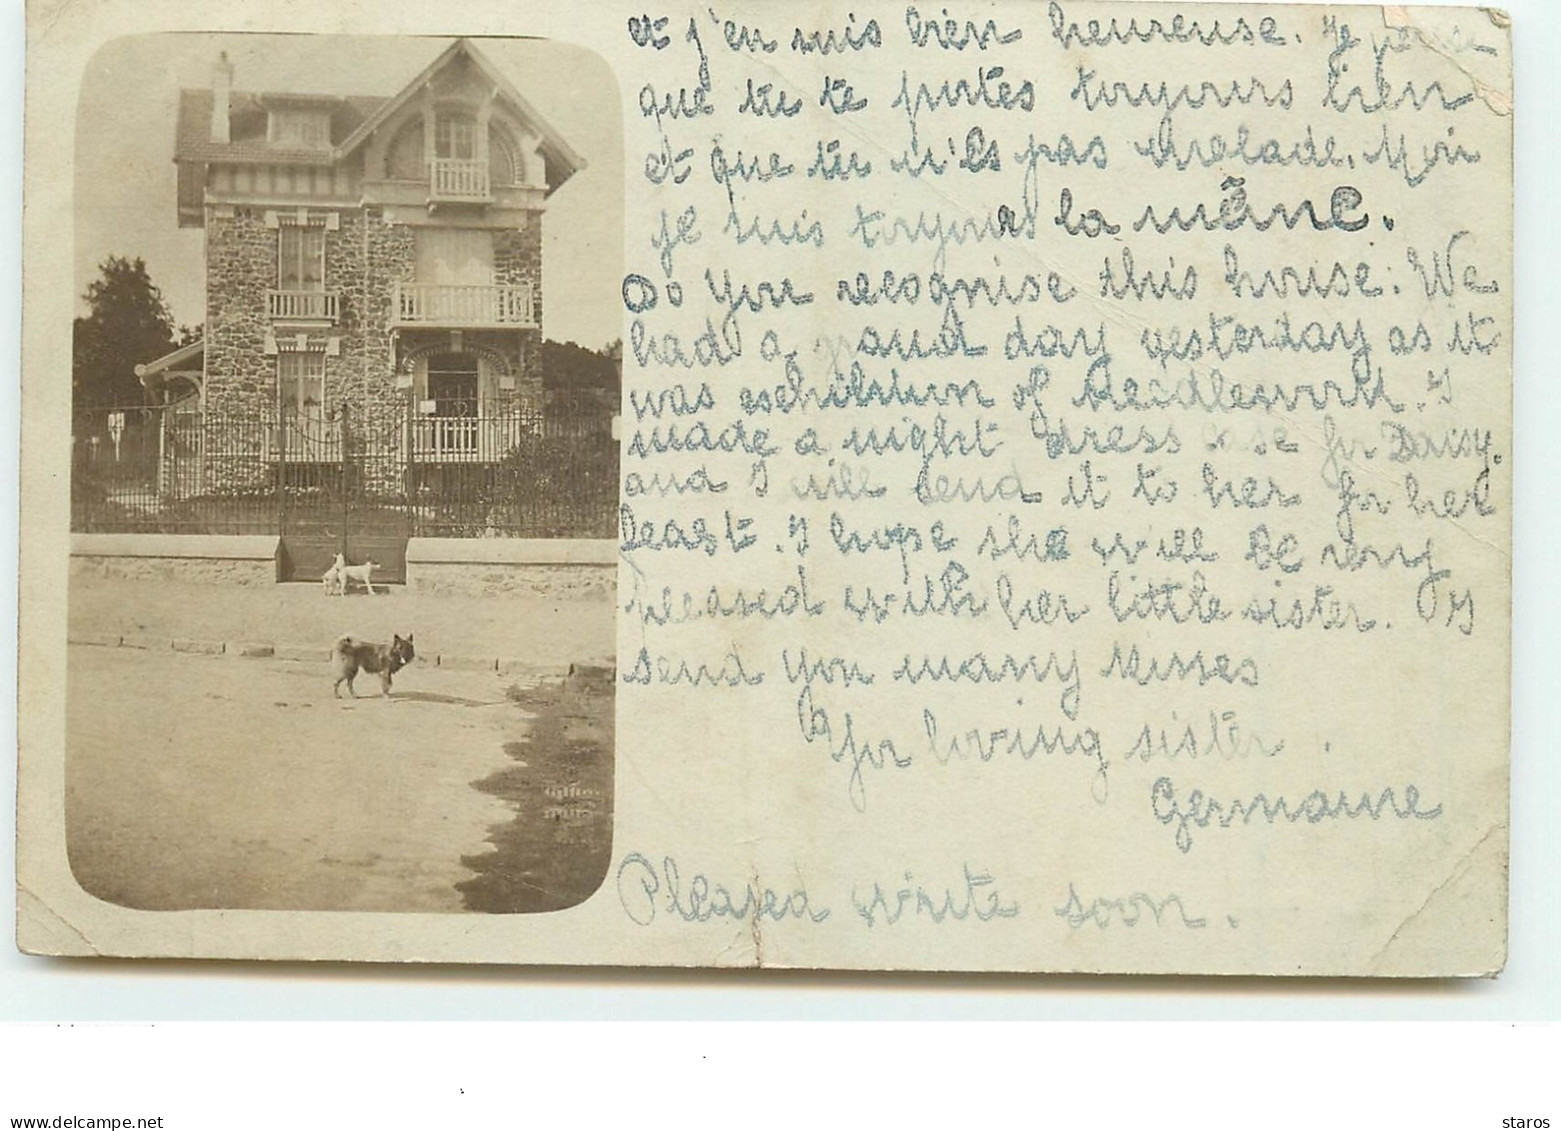 et j'en suis bien heureuse. Je pense
que tu te portes toujours bien
et que tu n'es pas malade. Moi
je suis toujours à la même.
Do you recognise this house: We
had a grand day yesterday as it
was eschibitiun of Needlework. I
made a night dress case for Daisy.
and I will send it to her for her
feast. I hope she will be very
pleased with her little sister. I
send you many kisses
Your loving sister.
Germaine
Pleased write soon.
www.delcampe.net
staros